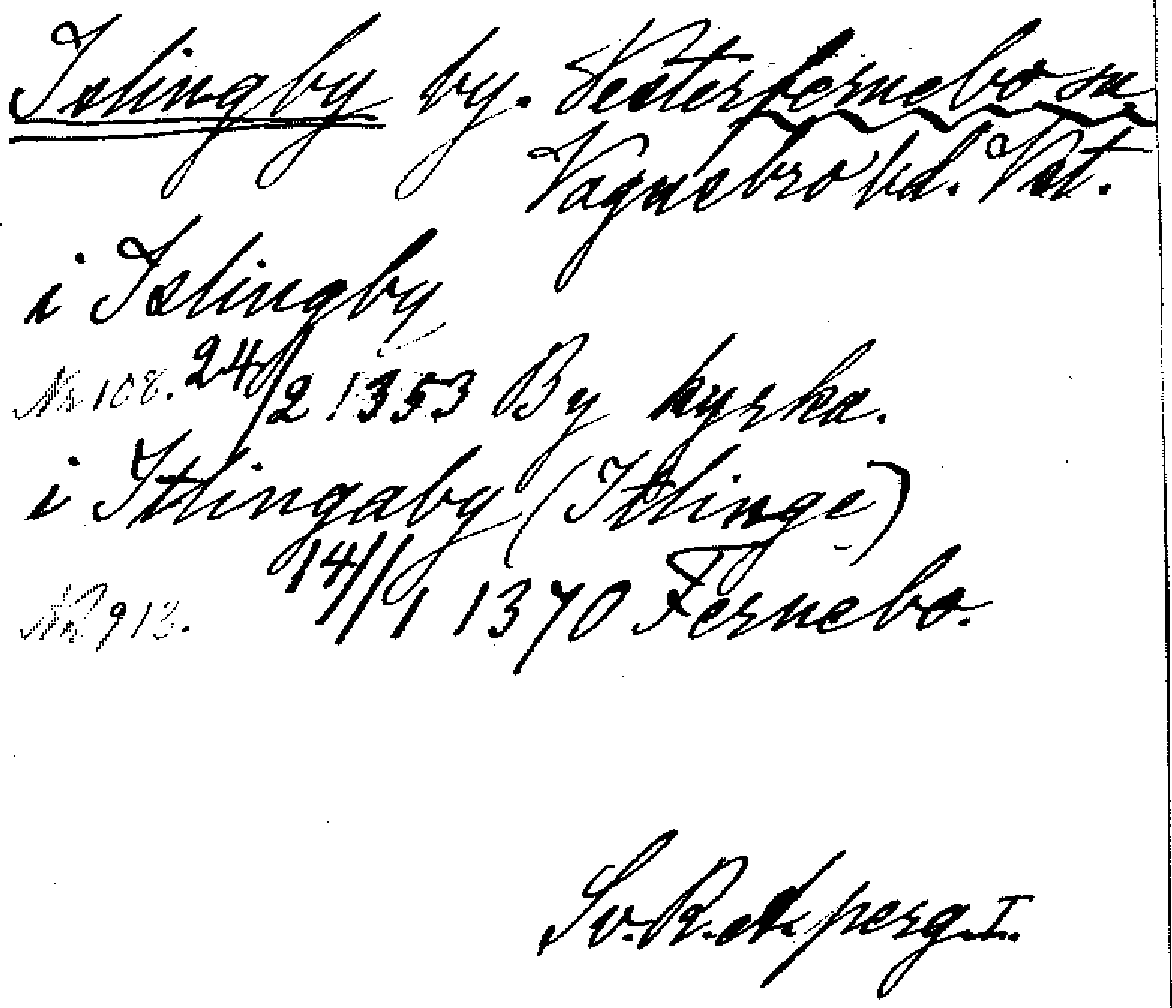 Islingby by. Vesterfernebo sn
Vagnsbro hd. Vst.
i Islingby
No 108. 24/2 1353 By kyrka.
i Itslingaby (Itslinge)
No 913. 14/1 1370 Fernebo.
Sv. R. A. perg. I.